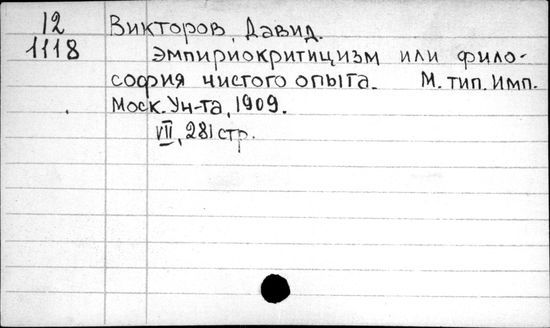 12 Викторов, Давид.
1118 Эмпириокритицизм или фило-
софия чистого опыта. М. тип. Имп.
Моск. Ун-та, 1909.
VII, 281 стр.